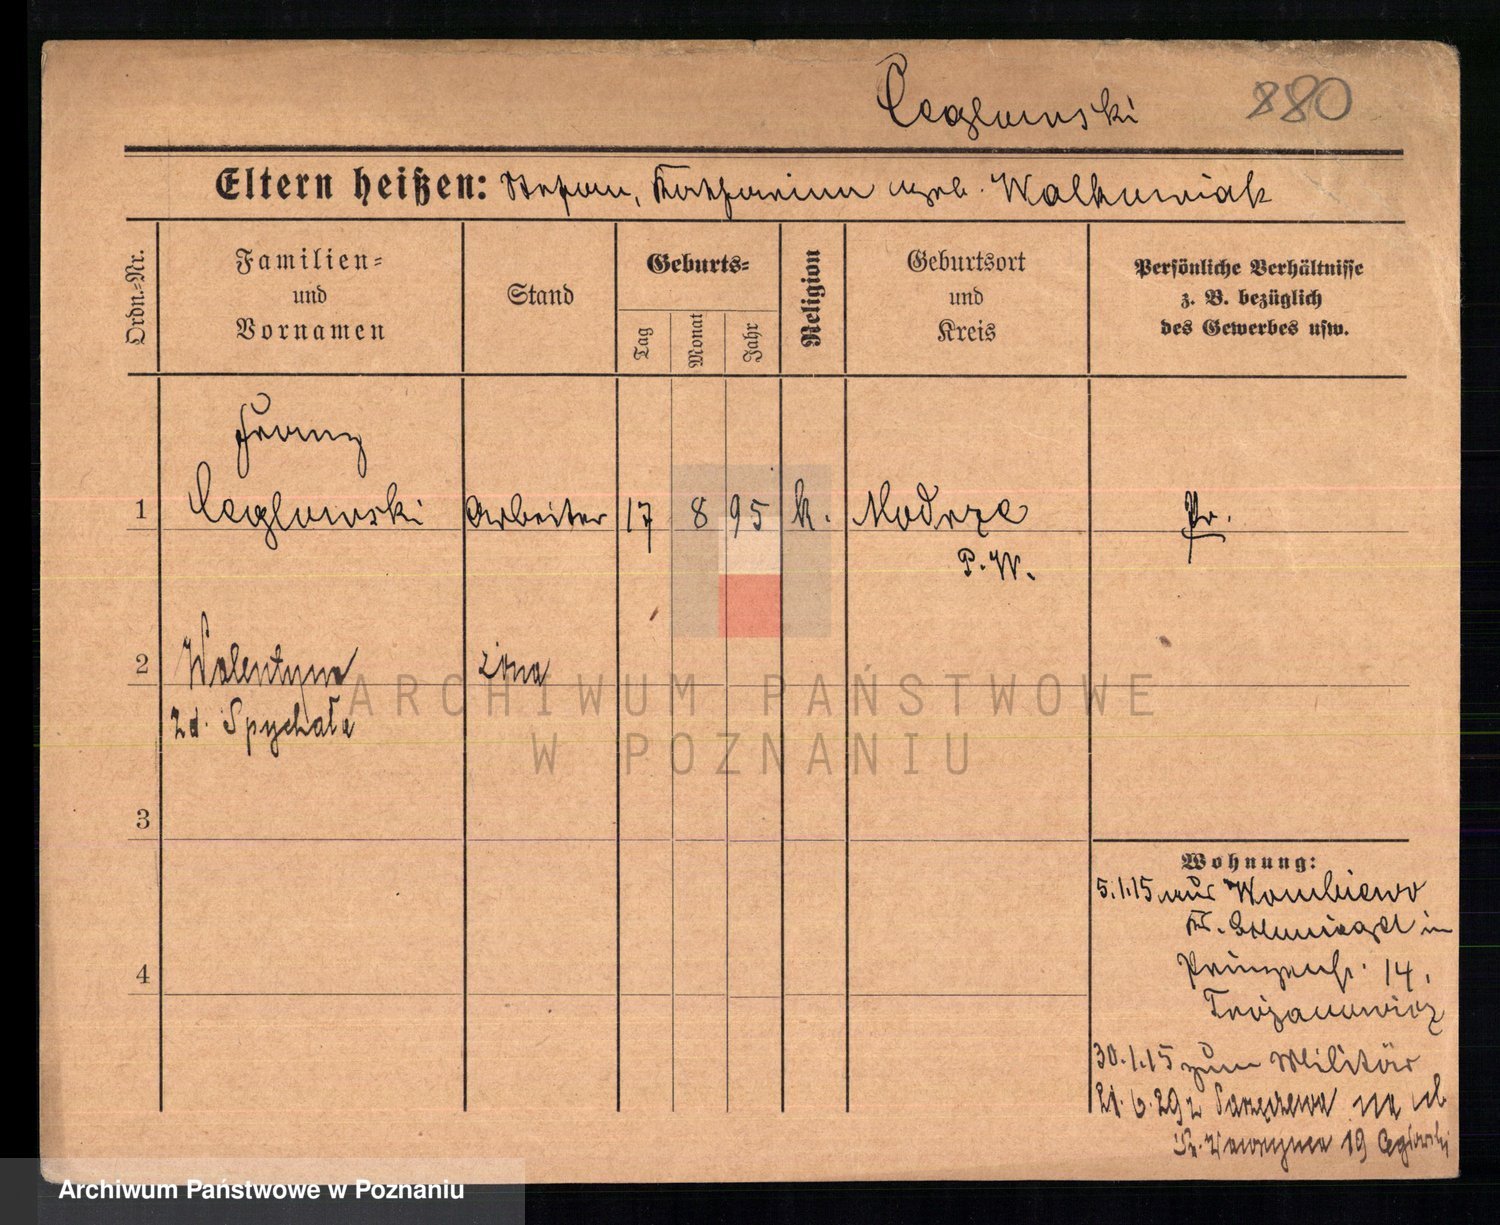 Ceglowski 880
Eltern heißen: Stefan, Katharina geb. Walkowiak
Ordn.-Nr.
Familien-
und
Vornamen
Stand
Geburts-
Tag
Monat
Jahr
Religion
Geburtsort
und
Kreis
Persönliche Verhältnisse
z. B. bezüglich
des Gewerbes usw.
Franz
1 Ceglowski Arbeiter 17 8 95 k. Modrze Pr.
P. W.
2 Walentyna żona
zd. Spychała
3
4
Wohnung:
5.1.15 aus
Kr. in
Prinzenstr. 14.
Trojanowicz
30.1.15 zum Militär
21.6.29 z na ul
Św. Wawrzyńca 19
ARCHIWUM PAŃSTWOWE
W POZNANIU
Archiwum Państwowe w Poznaniu